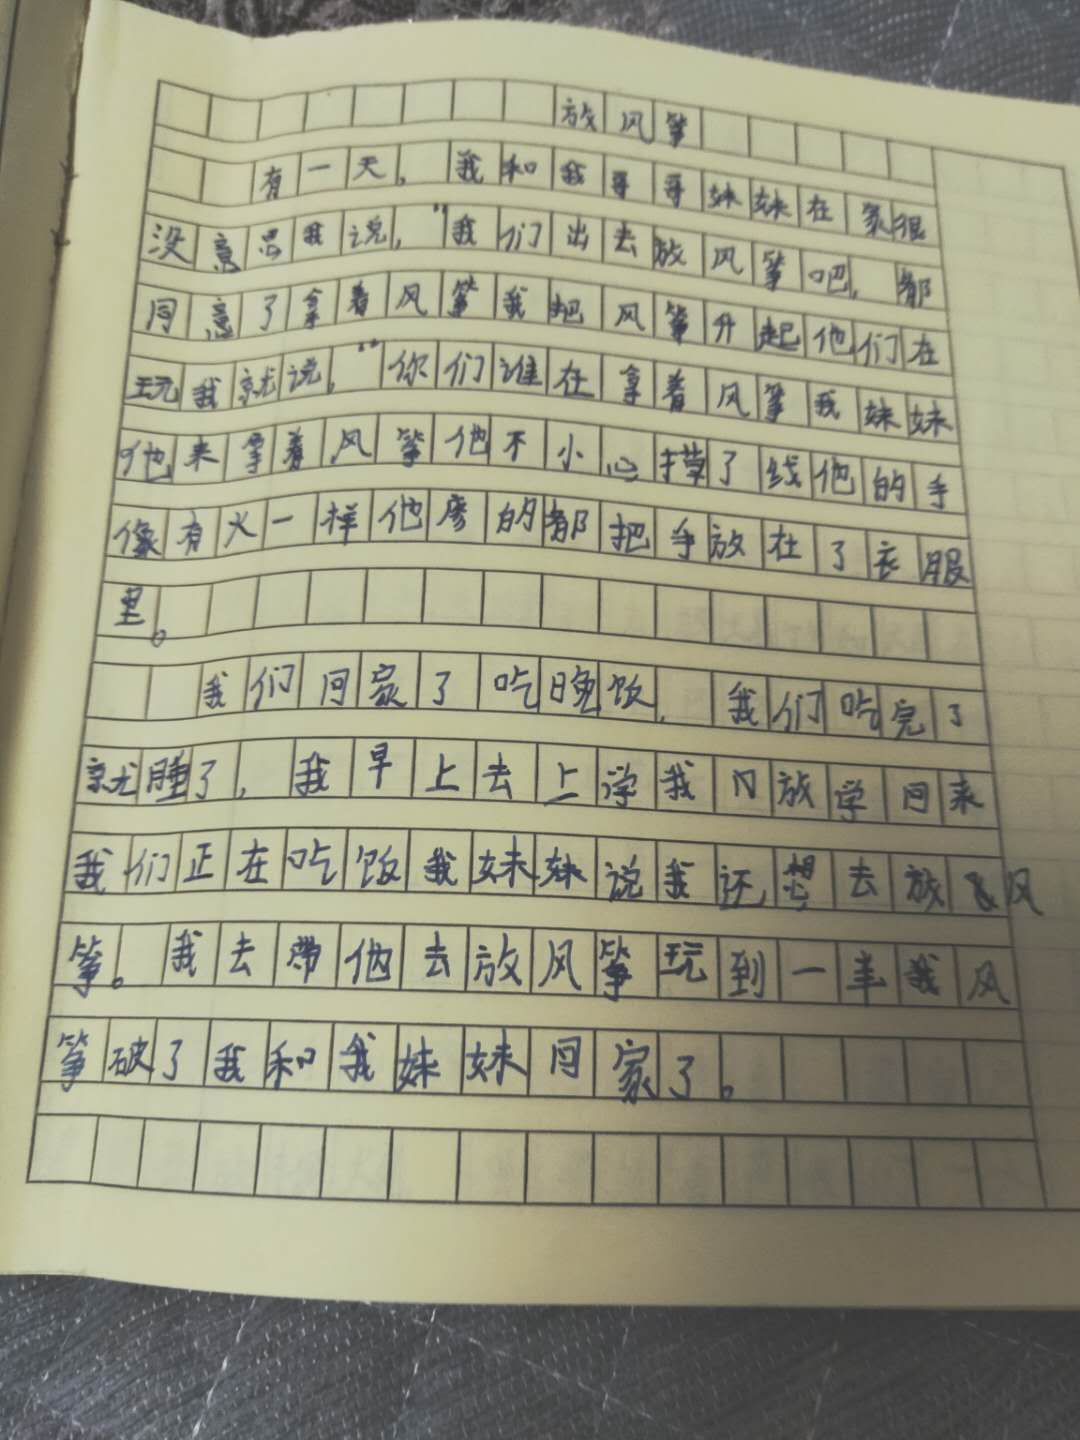 放风筝
有一天，我和我哥哥妹妹在家很
没意思我说，“我们出去放风筝吧，都
同意了拿着风筝我把风筝升起他们在
玩我就说，“你们谁在拿着风筝我妹妹
他来拿着风筝他不小心摸了线他的手
像有火一样他疼的都把手放在了衣服
里。
我们回家了吃晚饭，我们吃完了
就睡了，我早上去上学我放学回来
我们正在吃饭我妹妹说我还想去放风
筝。我去带他去放风筝玩到一半我风
筝破了我和我妹妹回家了。